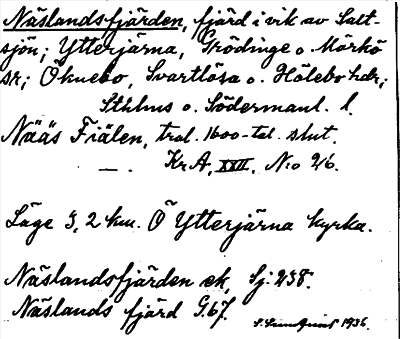 Näslandsfjärden, fjärd i vik av Salt-
sjön; Ytterjärna, Grödinge o. Mörkö
sr; Öknebo, Svartlösa o. Hölebo hdr;
Sthlms o. Södermanl. l.
Nääs Fiälen, trol. 1600-tal. slut.
—. KrA, XXII, N:o 26.
Läge 3,2 km. Ö Ytterjärna kyrka.
Näslandsfjärden ek, Sj: 238.
Näslands fjärd G.67.
S. Sundquist 1936.